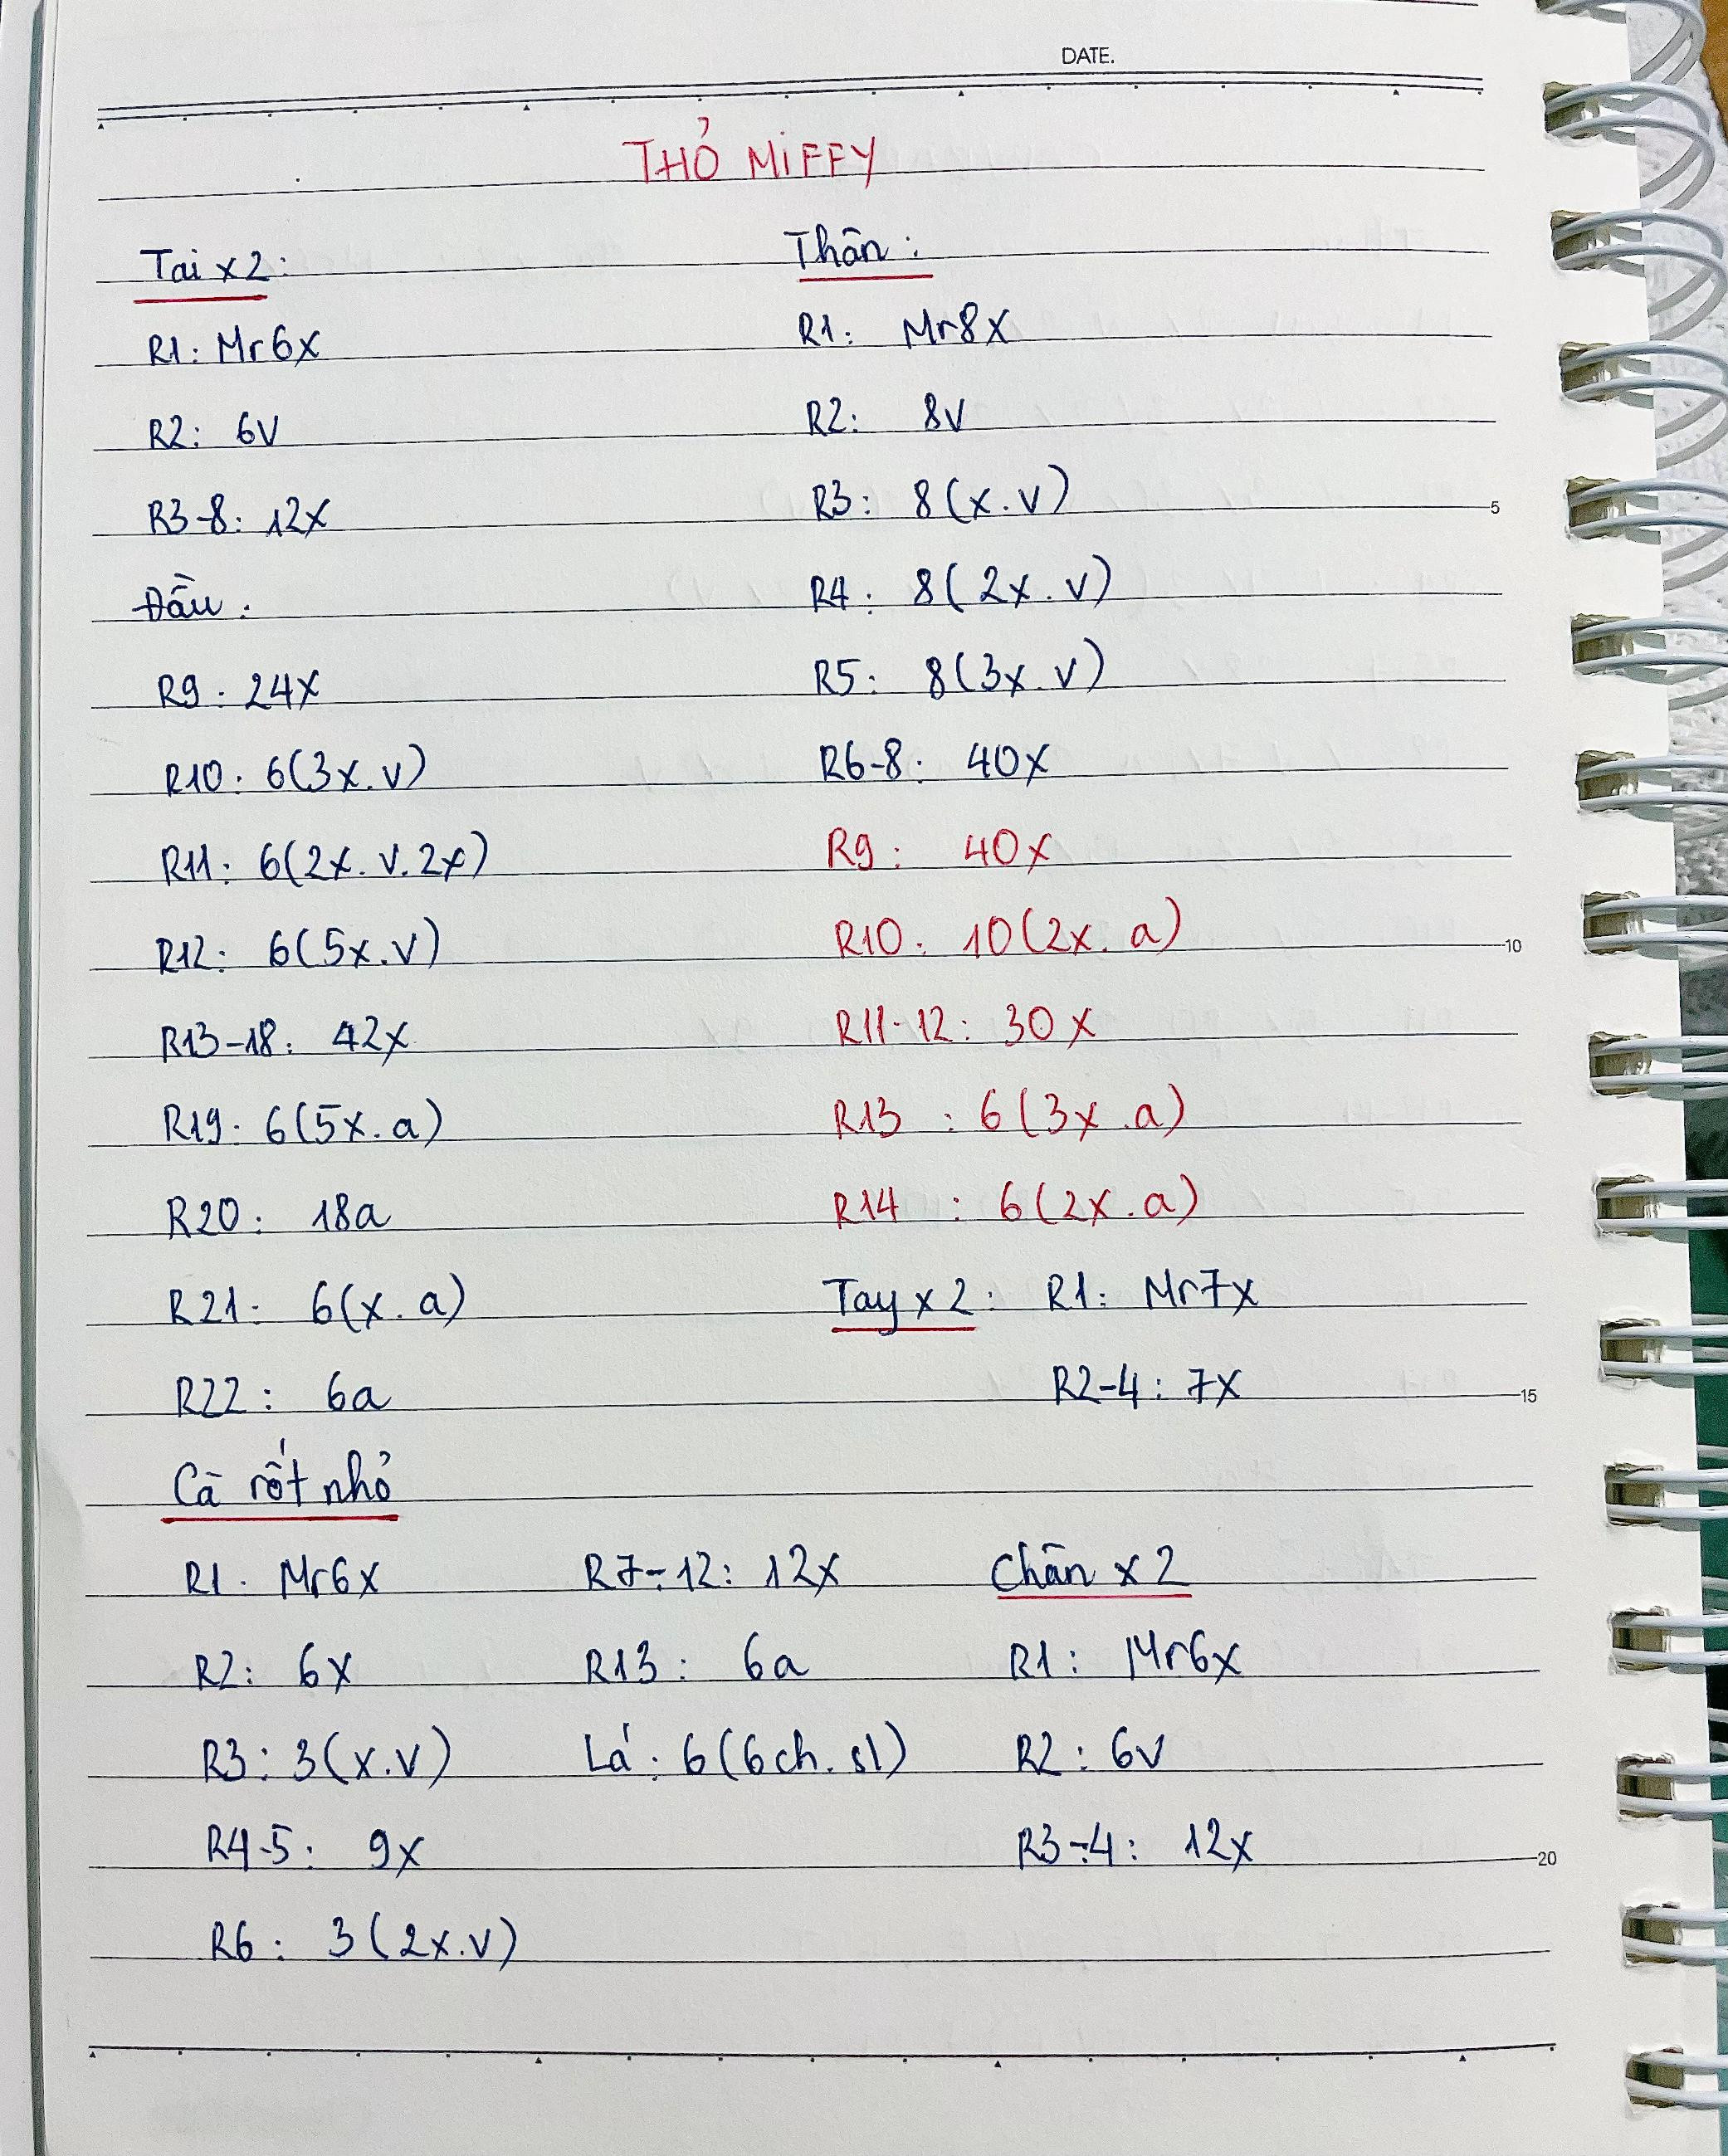 DATE.
THỎ MIFFY
Tai x 2:
R1: Mr6x
R2: 6V
R3-8: 12x
Đầu:
R9: 24x
R10: 6(3x.v)
R11: 6(2x.v.2x)
R12: 6(5x.v)
R13-18: 42x
R19: 6(5x.a)
R20: 18a
R21: 6(x.a)
R22: 6a
Thân:
R1: Mr8x
R2: 8V
R3: 8(x.v)
R4: 8(2x.v)
5
R5: 8(3x.v)
R6-8: 40x
R9: 40x
R10: 10(2x.a)
10
R11-12: 30x
R13: 6(3x.a)
R14: 6(2x.a)
Tay x 2: R1: Mr7x
R2-4: 7x
15
Cà rốt nhỏ
R1: Mr6x
R2: 6x
R3: 3(x.v)
R4-5: 9x
R6: 3(2x.v)
R7-12: 12x
R13: 6a
Lá: 6(6ch.sl)
Chân x 2
R1: Mr6x
R2: 6v
R3-4: 12x
20